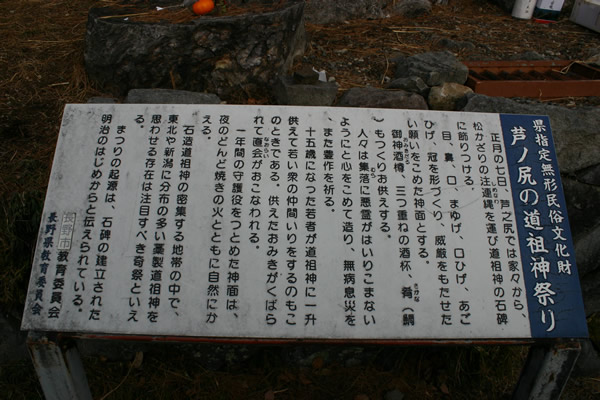 県指定無形民俗文化財
芦ノ尻の道祖神祭り
正月の七日、芦之尻では家々から、
松かざりの注連縄を運び道祖神の石碑
に飾りつける。
目、鼻、口、まゆげ、口ひげ、あご
ひげ、冠を形づくり、威厳をもたせた
い願いをこめた神面とする。
御神酒樽、三つ重ねの酒杯、肴（鯛
）もつくりお供えする。
人々は集落に悪霊がはいりこまない
ようにと心をこめて造り、無病息災を
、また豊作を祈る。
十五歳になった若者が道祖神に一升
供えて若い衆の仲間いりをするのもこ
のときである。供えたおみきがくばら
れて直会がおこなわれる。
一年間の守護役をつとめた神面は、
夜のどんど焼きの火とともに自然にか
える。
石造道祖神の密集する地帯の中で、
東北や新潟に分布の多い藁製道祖神を
思わせる存在は注目すべき奇祭といえ
る。
まつりの起源は、石碑の建立された
明治のはじめからと伝えられている。
長野市教育委員会
長野県教育委員会